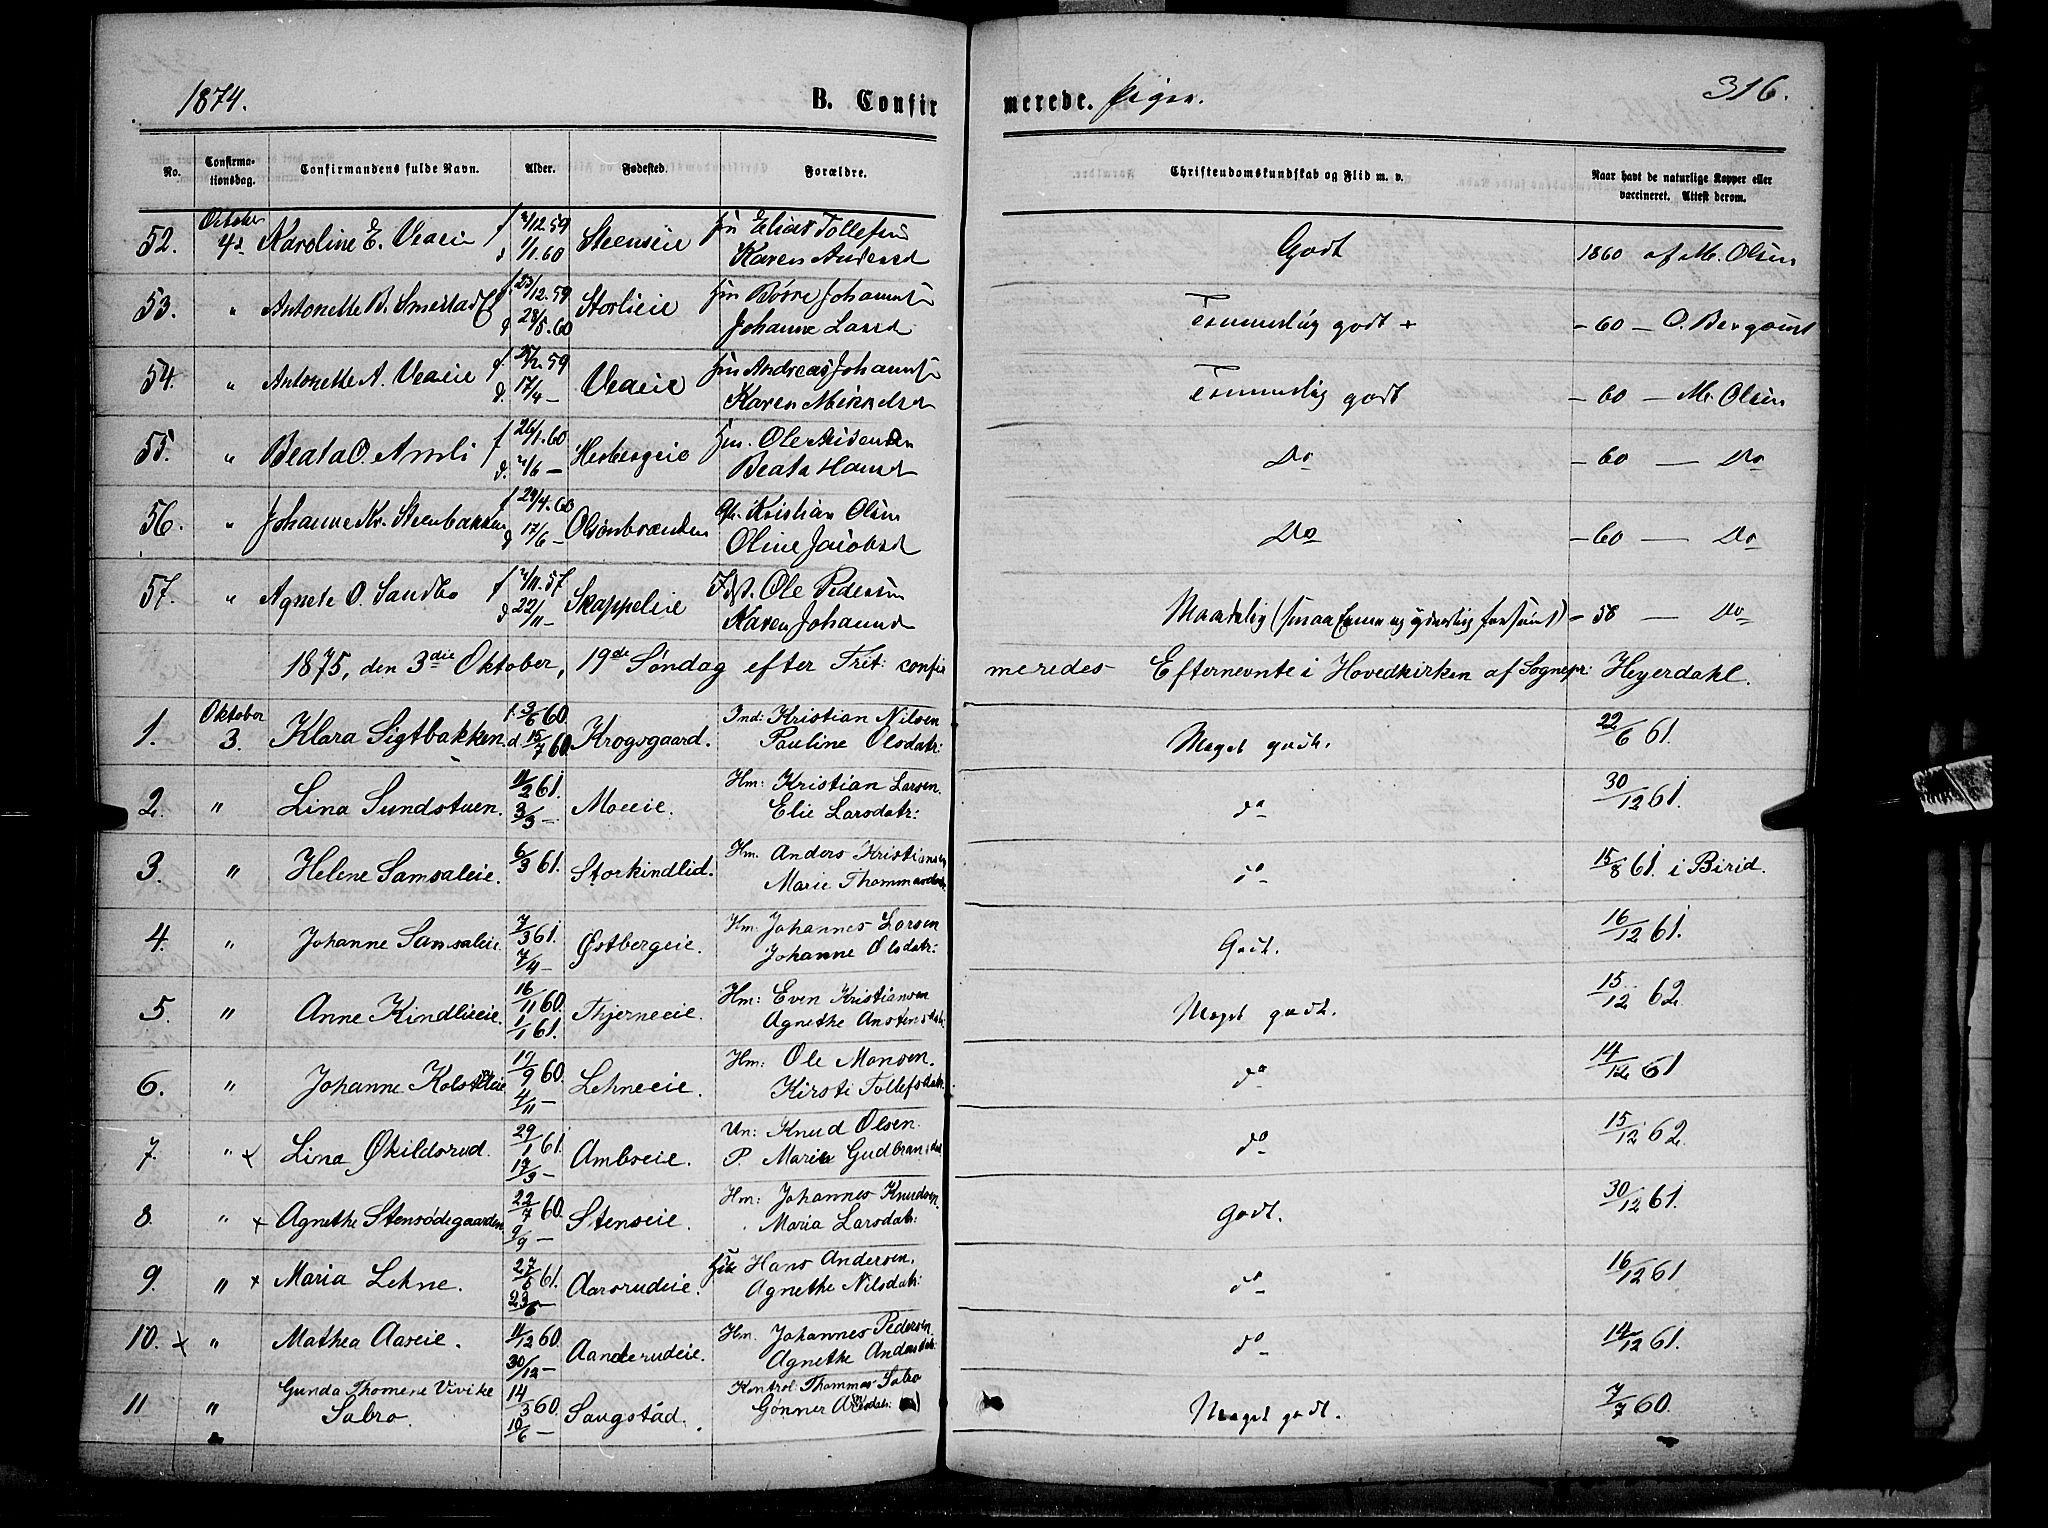 1874. B. Confirmerede. Piger. 316.
No. Confirmationsdag. Confirmandens fulde Navn. Alder. Fødested. Forældre. Christendomskundskab og Flid m. v. Naar havt de naturlige Kopper eller vaccineret. Attest derom.
52. October 4d Karoline E. Veaeie f 12.59 Steenseie Hm Elias Tollefsen Godt 1860 af M. Olsen
d 1/1.60 Karen Andersd
53. " Antonette B. f. 23/12.59 Storlieie Hm Børre Johanns Temmelig godt + - 60 - O. Bergqvist
d 28/5.60 Johanne Larsd
54. " Antonette A. Veaeie f 59 Veaeie Hm Andreas Johanns Temmelig godt - 60 - M. Olsen
d. 17/4 - Karen Mikkelsd
55. " Beata O. Amli f 26/1.60 Herbergeie Hm. Ole Do - 60 - Do
d. /6 - Beata Hansd
56. " Johanne Kr. Steenbakken f 24/4.60 Olsønbrænden Kristian Olsen Do - 60 - Do
d 17/6 - Oline Jacobsd
57. " Agnete O. Sandbo f /11.57 Skappeleie Ole Pedersen Maadelig (smaa Evner og yderlig forsømt) - 58 - Do
d 22/11 - Karen Johannsd
1875, den 3die Oktober, 19de Søndag efter Trit: confirmeredes Efternevnte i Hovedkirken af Sognepr: Heyerdahl.
1. Oktober 3. Klara Sigtbakken. f. 3/6 60. Krogsgaard. Ind: Kristian Nilsen Meget godt. 22/6 61.
d. 15/7 60. Pauline Olsdatr:
2. " Lina Sundstuen. 11/2 61. Moeeie. Hm: Kristian Larsen. do 30/12 61.
3/3 - Elie Larsdatr:
3. " Helene Samsaleie. 6/3 61. Storkindlid. Hm. Anders Kristiansen do 15/8 61. i Birid.
Marie Thommasdatr.
4. " Johanne Samsaleie. 7/3 61. Østbergeie. Hm: Johannes Larsen Godt. 16/12 61.
7/4 - Johanne Olsdatr:
5. " Anne Kindlieie. 16/11 60. Thjerneeie. Hm: Even Kristiansen Meget godt. 15/12 62.
1/1 61. Agnethe Anstensdatr:
6. " Johanne 19/9 60. Lehneeie. Hm: Ole Monsen. do 14/12 61
4/11 - Kirsti Tollefsdatr.
7. " x Lina Økildsrud. 29/1 61. Ambseie. Un: Knud Olsen. do 15/12 62.
17/3 - P. Maria Gudbransdat
8. " x Agnethe Stensødegaarden. 22/7 60. Stenseie. Hm: Johannes Knudsen. Godt. 30/12 61.
9/9 - Maria Larsdatr:
9. " x Maria Lehne. 27/5 61. Aarsrudeie. Hans Andersen. do 16/12 61
23/6 - Agnethe Nilsdatr:
10. x " Mathea Aaseie. 11/12 60. Aanderudeie. Hm. Johannes Pedersen. do 14/12 61.
30/12 - Agnethe Andersdatr.
11 " Gunda Thomene Vivike 14/3 60. Saugstad. Kontrol: Thommas Sabro Meget godt. 7/7 60.
Sabro. 10/6 - Gønner